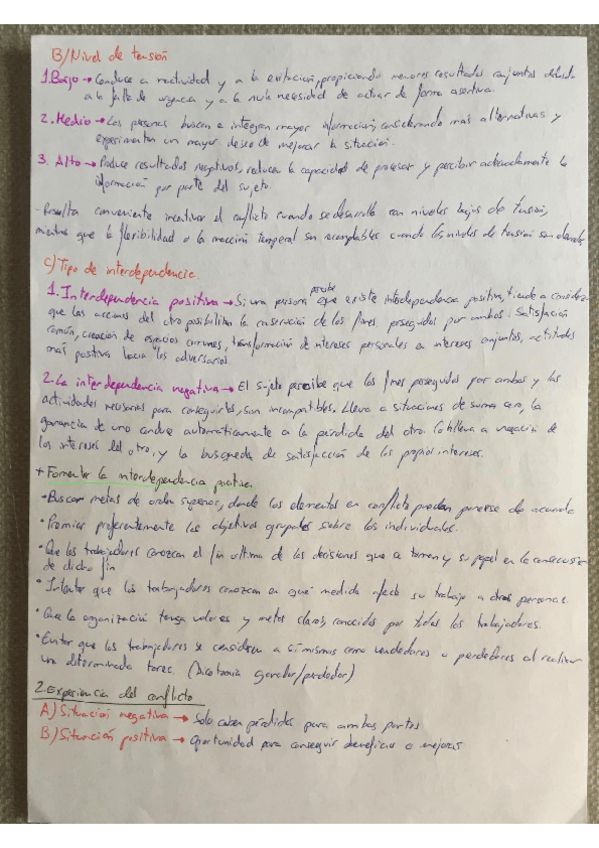 B/ Nivel de tensión
1. Bajo → Conduce a inactividad y a la evitación, propiciando menores resultados conjuntos debido
a la falta de urgencia y a la nula necesidad de actuar de forma asertiva.
2. Medio → Las personas buscan e integran mayor información, considerando más alternativas y
experimentan un mayor deseo de mejorar la situación.
3. Alto → Produce resultados negativos, reduce la capacidad de procesar y percibir adecuadamente la
información por parte del sujeto.
- Resulta conveniente incentivar el conflicto cuando se desarrolla con niveles bajos de tensión,
mientras que la flexibilidad o la temporal son aceptables cuando los niveles de tensión son elevados.
C/ Tipo de interdependencia.
1. Interdependencia positiva → Si una persona percibe que existe interdependencia positiva, tiende a considerar
que las acciones del otro posibilitan la consecución de los fines perseguidos por ambos. Satisfacción
común, creación de espacios comunes, transformación de intereses personales a intereses conjuntos, actitudes
más positivas hacia los adversarios.
2. La interdependencia negativa → El sujeto percibe que los fines perseguidos por ambos y las
actividades necesarias para conseguirlos, son incompatibles. Lleva a situaciones de suma cero, la
ganancia de uno conduce automáticamente a la pérdida del otro. Conlleva a negación de
los intereses del otro, y la búsqueda de satisfacción de los propios intereses.
+ Fomentar la interdependencia positiva.
• Buscar metas de orden superior, donde los elementos en conflicto puedan ponerse de acuerdo
• Premiar preferentemente los objetivos grupales sobre los individuales.
• Que los trabajadores conozcan el fin último de las decisiones que se toman y su papel en la consecución
de dicho fin
• Intentar que los trabajadores conozcan en qué medida afecta su trabajo a otras personas.
• Que la organización tenga valores y metas claras, conocidas por todos los trabajadores.
• Evitar que los trabajadores se consideren a sí mismos como vencedores o perdedores al realizar
una determinada tarea. (Dicotomía ganador/perdedor)
2. Experiencia del conflicto
A) Situación negativa → Solo caben pérdidas para ambas partes
B) Situación positiva → Oportunidad para conseguir beneficios o mejoras